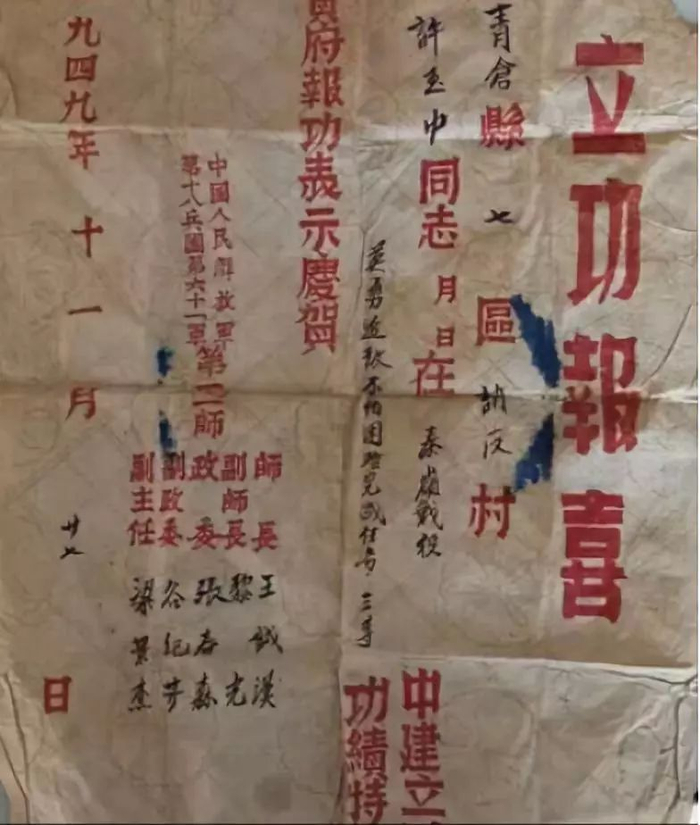 立功報喜
青倉縣七區村
許玉中同志 月 日在秦嶺戰役中建立
英勇追敌不怕困难完成任务，三等功績特
府報功表示慶賀
中國人民解放軍
第十八兵團第六十一軍第一八一師
師長 王誠漢
副師長 黎光
政委 張春森
副政委 谷紀
副主任 梁杰
九四九年十一月廿七日